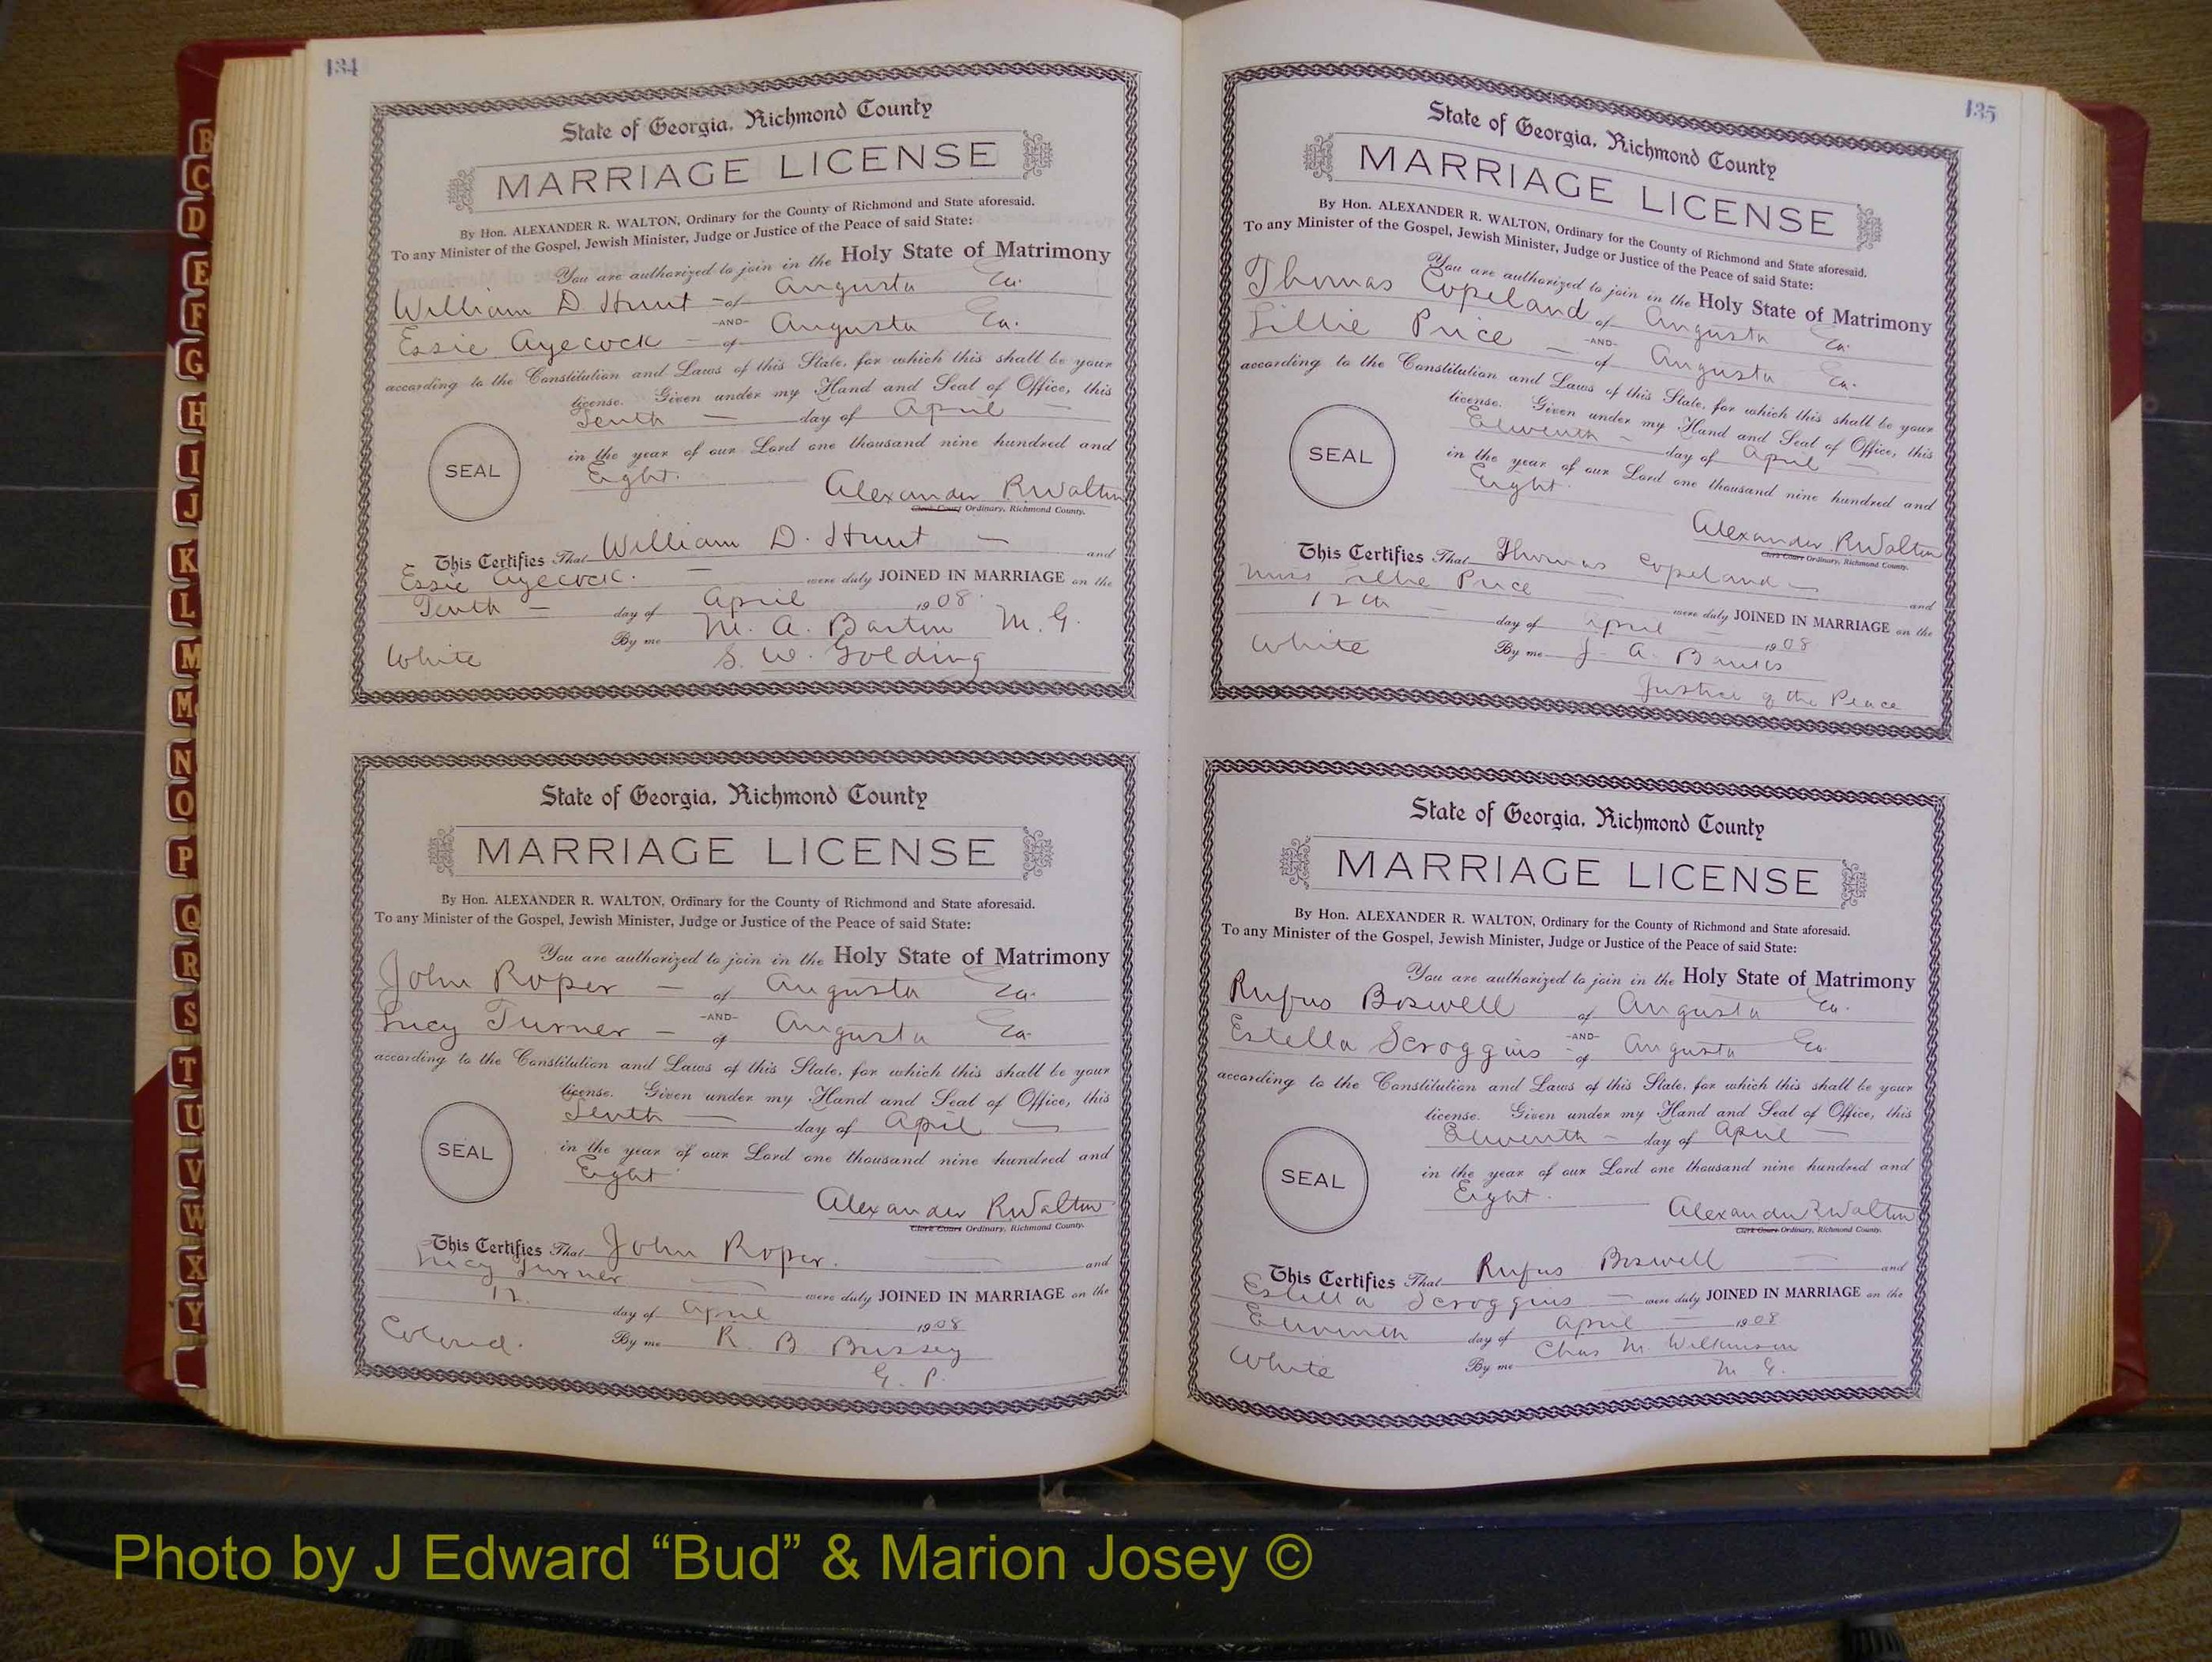 134
State of Georgia, Richmond County
MARRIAGE LICENSE
By Hon. ALEXANDER R. WALTON, Ordinary for the County of Richmond and State aforesaid.
To any Minister of the Gospel, Jewish Minister, Judge or Justice of the Peace of said State:
You are authorized to join in the Holy State of Matrimony
William D Hunt - of Augusta Ga.
-AND-
Essie Ayecock - of Augusta Ga.
according to the Constitution and Laws of this State, for which this shall be your
license. Given under my Hand and Seal of Office, this
Tenth - day of April -
in the year of our Lord one thousand nine hundred and
Eight.
SEAL
Alexander R Walton
Clerk Court Ordinary, Richmond County.
This Certifies That William D. Hunt - and
Essie Ayecock. - were duly JOINED IN MARRIAGE on the
Tenth - day of April 1908.
By me M. A. Barton M. G.
White S. W. Golding
State of Georgia, Richmond County
MARRIAGE LICENSE
By Hon. ALEXANDER R. WALTON, Ordinary for the County of Richmond and State aforesaid.
To any Minister of the Gospel, Jewish Minister, Judge or Justice of the Peace of said State:
You are authorized to join in the Holy State of Matrimony
John Roper - of Augusta Ga.
-AND-
Lucy Turner - of Augusta Ga.
according to the Constitution and Laws of this State, for which this shall be your
license. Given under my Hand and Seal of Office, this
Tenth - day of April -
in the year of our Lord one thousand nine hundred and
Eight
SEAL
Alexander R Walton
Clerk Court Ordinary, Richmond County.
This Certifies That John Roper. - and
Lucy Turner - were duly JOINED IN MARRIAGE on the
12. day of April 1908
Colored. By me R. B Bussey
G. P.
135
State of Georgia, Richmond County
MARRIAGE LICENSE
By Hon. ALEXANDER R. WALTON, Ordinary for the County of Richmond and State aforesaid.
To any Minister of the Gospel, Jewish Minister, Judge or Justice of the Peace of said State:
You are authorized to join in the Holy State of Matrimony
Thomas Copeland of Augusta Ga.
-AND-
Lillie Price - of Augusta Ga.
according to the Constitution and Laws of this State, for which this shall be your
license. Given under my Hand and Seal of Office, this
Eleventh - day of April -
in the year of our Lord one thousand nine hundred and
Eight.
SEAL
Alexander R Walton
Clerk Court Ordinary, Richmond County.
This Certifies That Thomas Copeland - and
Miss Lillie Price - were duly JOINED IN MARRIAGE on the
12th - day of April - 1908
White By me J. A. Banks
Justice of the Peace
State of Georgia, Richmond County
MARRIAGE LICENSE
By Hon. ALEXANDER R. WALTON, Ordinary for the County of Richmond and State aforesaid.
To any Minister of the Gospel, Jewish Minister, Judge or Justice of the Peace of said State:
You are authorized to join in the Holy State of Matrimony
Rufus Boswell of Augusta Ga.
-AND-
Estella Scroggins - of Augusta Ga.
according to the Constitution and Laws of this State, for which this shall be your
license. Given under my Hand and Seal of Office, this
Eleventh - day of April -
in the year of our Lord one thousand nine hundred and
Eight.
SEAL
Alexander R Walton
Clerk Court Ordinary, Richmond County.
This Certifies That Rufus Boswell - and
Estella Scroggins - were duly JOINED IN MARRIAGE on the
Eleventh day of April - 1908
White By me Chas M. Wilkinson
M. G.
B
C
D
E
F
G
H
I
J
K
L
M
Mc
N
O
P
Q
R
S
T
U
V
W
X
Y
Photo by J Edward “Bud” & Marion Josey ©